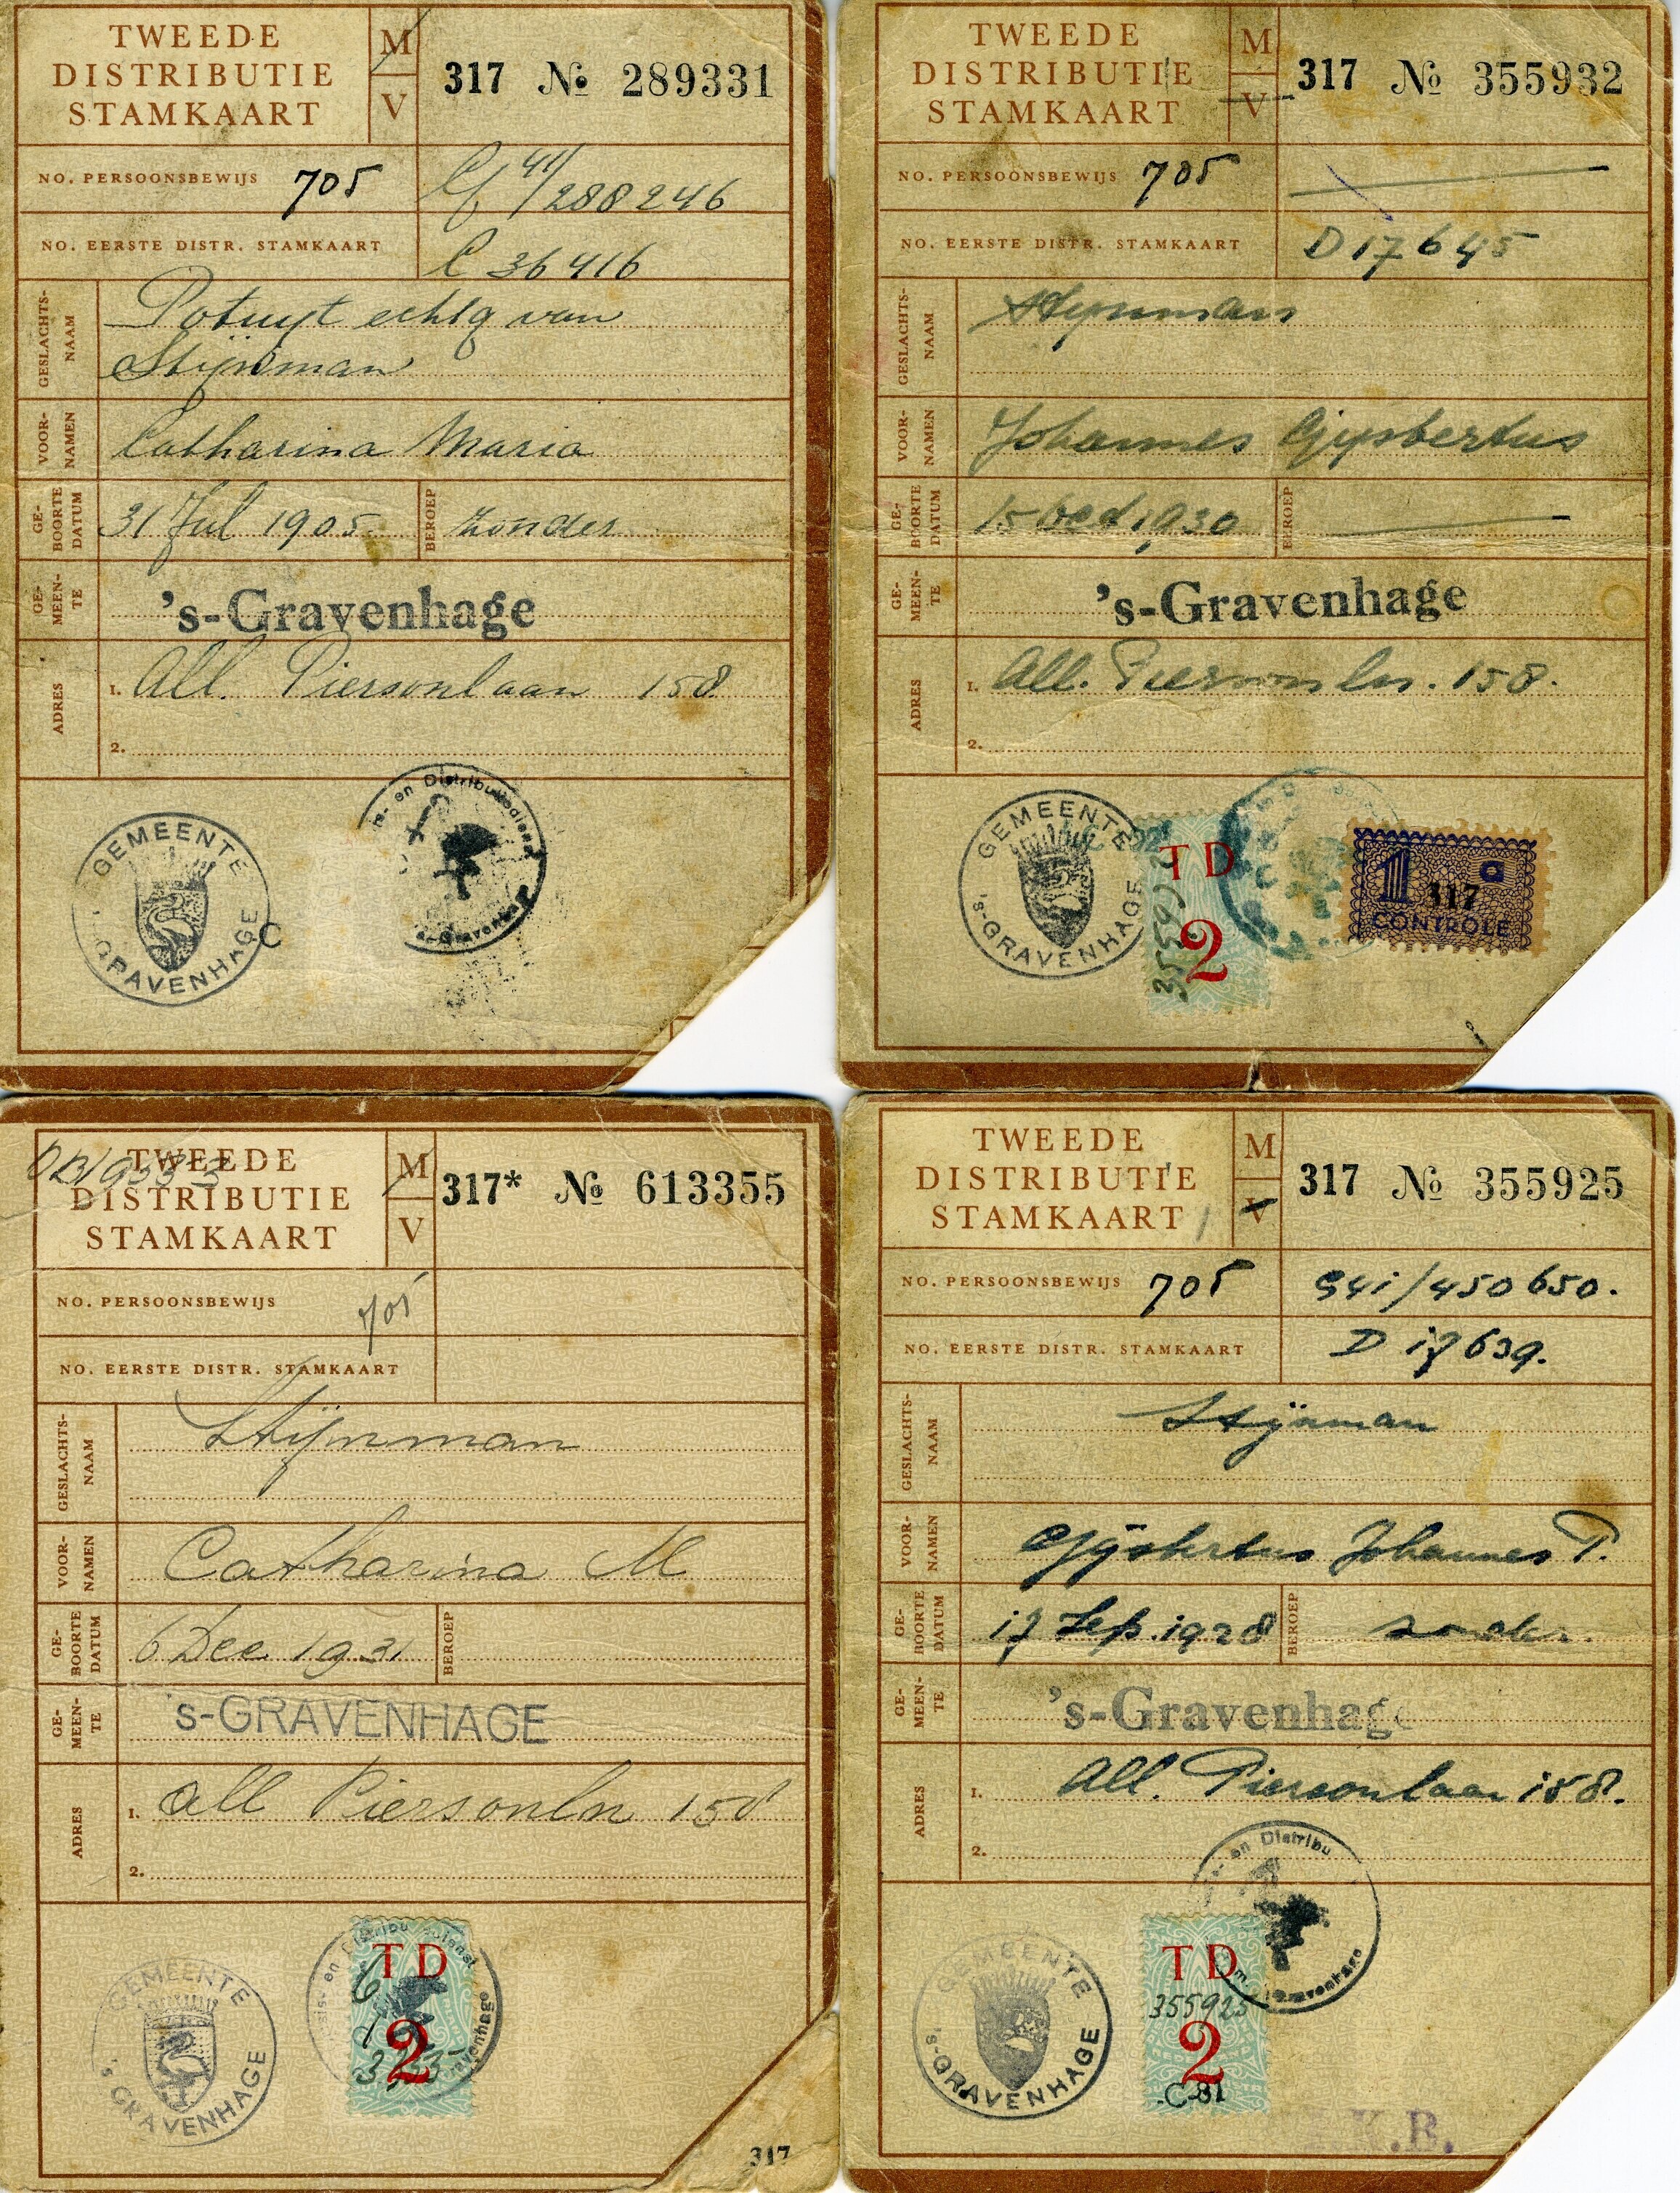 TWEEDE
DISTRIBUTIE
STAMKAART
M
V
317 № 289331
NO. PERSOONSBEWIJS 705
41/288246
NO. EERSTE DISTR. STAMKAART
C 36416
GESLACHTS-
NAAM
Potuyt echtg van
Stijnman
VOOR-
NAMEN
Catharina Maria
GE-
BOORTE
DATUM
31 Jul 1905
BEROEP
zonder
GE-
MEEN-
TE
's-Gravenhage
ADRES
1. All. Piersonlaan 158
2.
GEMEENTE
's-GRAVENHAGE
C
en Distributiedienst
TWEEDE
DISTRIBUTIE
STAMKAART
M
V
317 № 355932
NO. PERSOONSBEWIJS 705
NO. EERSTE DISTR. STAMKAART
D 17645
GESLACHTS-
NAAM
Stijnman
VOOR-
NAMEN
Johannes Gijsbertus
GE-
BOORTE
DATUM
15 Oct 1930
BEROEP
GE-
MEEN-
TE
's-Gravenhage
ADRES
1. All. Piersonln. 158.
2.
GEMEENTE
's-GRAVENHAGE
TD
2
1 317 G
CONTROLE
TWEEDE
DISTRIBUTIE
STAMKAART
M
V
317* № 613355
NO. PERSOONSBEWIJS
705
NO. EERSTE DISTR. STAMKAART
GESLACHTS-
NAAM
Stijnman
VOOR-
NAMEN
Catharina M
GE-
BOORTE
DATUM
6 Dec 1931
BEROEP
GE-
MEEN-
TE
's-GRAVENHAGE
ADRES
1. All Piersonln 158
2.
GEMEENTE
's-GRAVENHAGE
TD
2
317
TWEEDE
DISTRIBUTIE
STAMKAART
M
V
317 № 355925
NO. PERSOONSBEWIJS 705
G41/450650.
NO. EERSTE DISTR. STAMKAART
D 17639.
GESLACHTS-
NAAM
Stijnman
VOOR-
NAMEN
Gijsbertus Johannes P.
GE-
BOORTE
DATUM
17 Sep. 1928
BEROEP
zonder.
GE-
MEEN-
TE
's-Gravenhage
ADRES
1. All. Piersonlaan 158.
2.
en Distribu
Gravenhage
GEMEENTE
's-GRAVENHAGE
TD
355925
2
C-81
K.B.